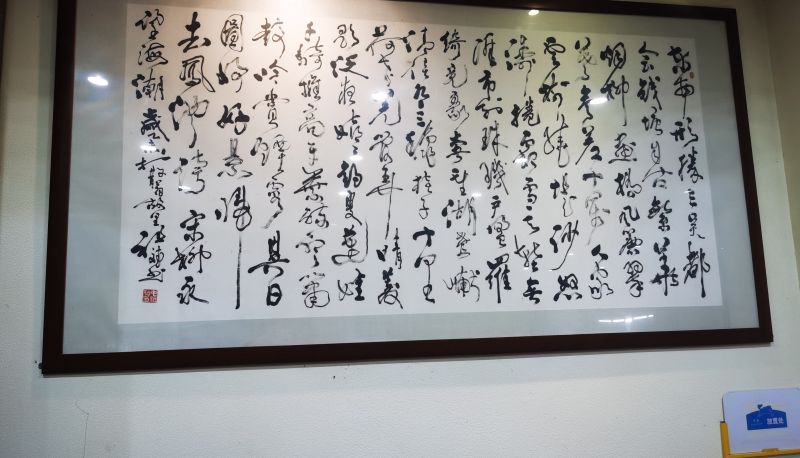 東南形勝三吳都
会钱塘自古繁華
烟柳画橋風簾翠
幕参差十萬人家
雲树繞堤沙怒
濤捲霜雪天塹無
涯市列珠璣户盈羅
綺競豪奢重湖叠巘
清佳有三秋桂子十里
荷花羌管弄晴菱
歌泛夜嬉嬉釣叟蓮娃
千騎擁高牙乘醉聽簫
鼓吟賞烟霞異日
圖将好景歸
去鳳池誇 宋柳永
望海潮
放置处